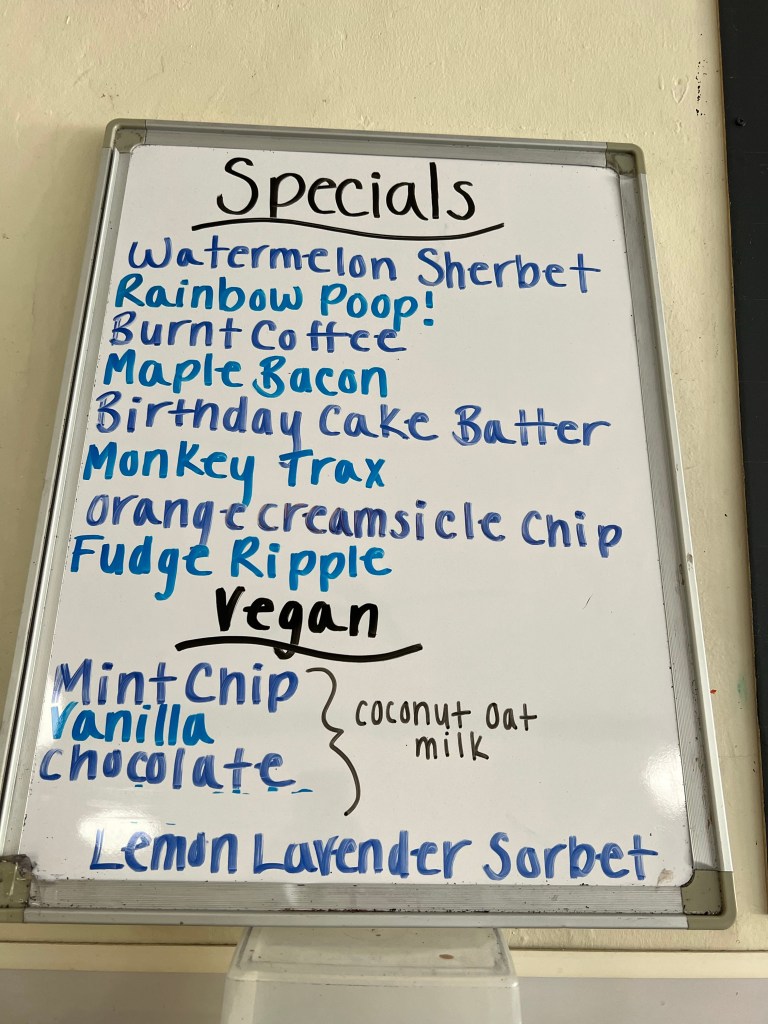 Specials
Watermelon Sherbet
Rainbow Poop!
Burnt Coffee
Maple Bacon
Birthday Cake Batter
Monkey Trax
orange creamsicle Chip
Fudge Ripple
Vegan
Mint Chip
Vanilla
chocolate
coconut oat
milk
Lemon Lavender Sorbet